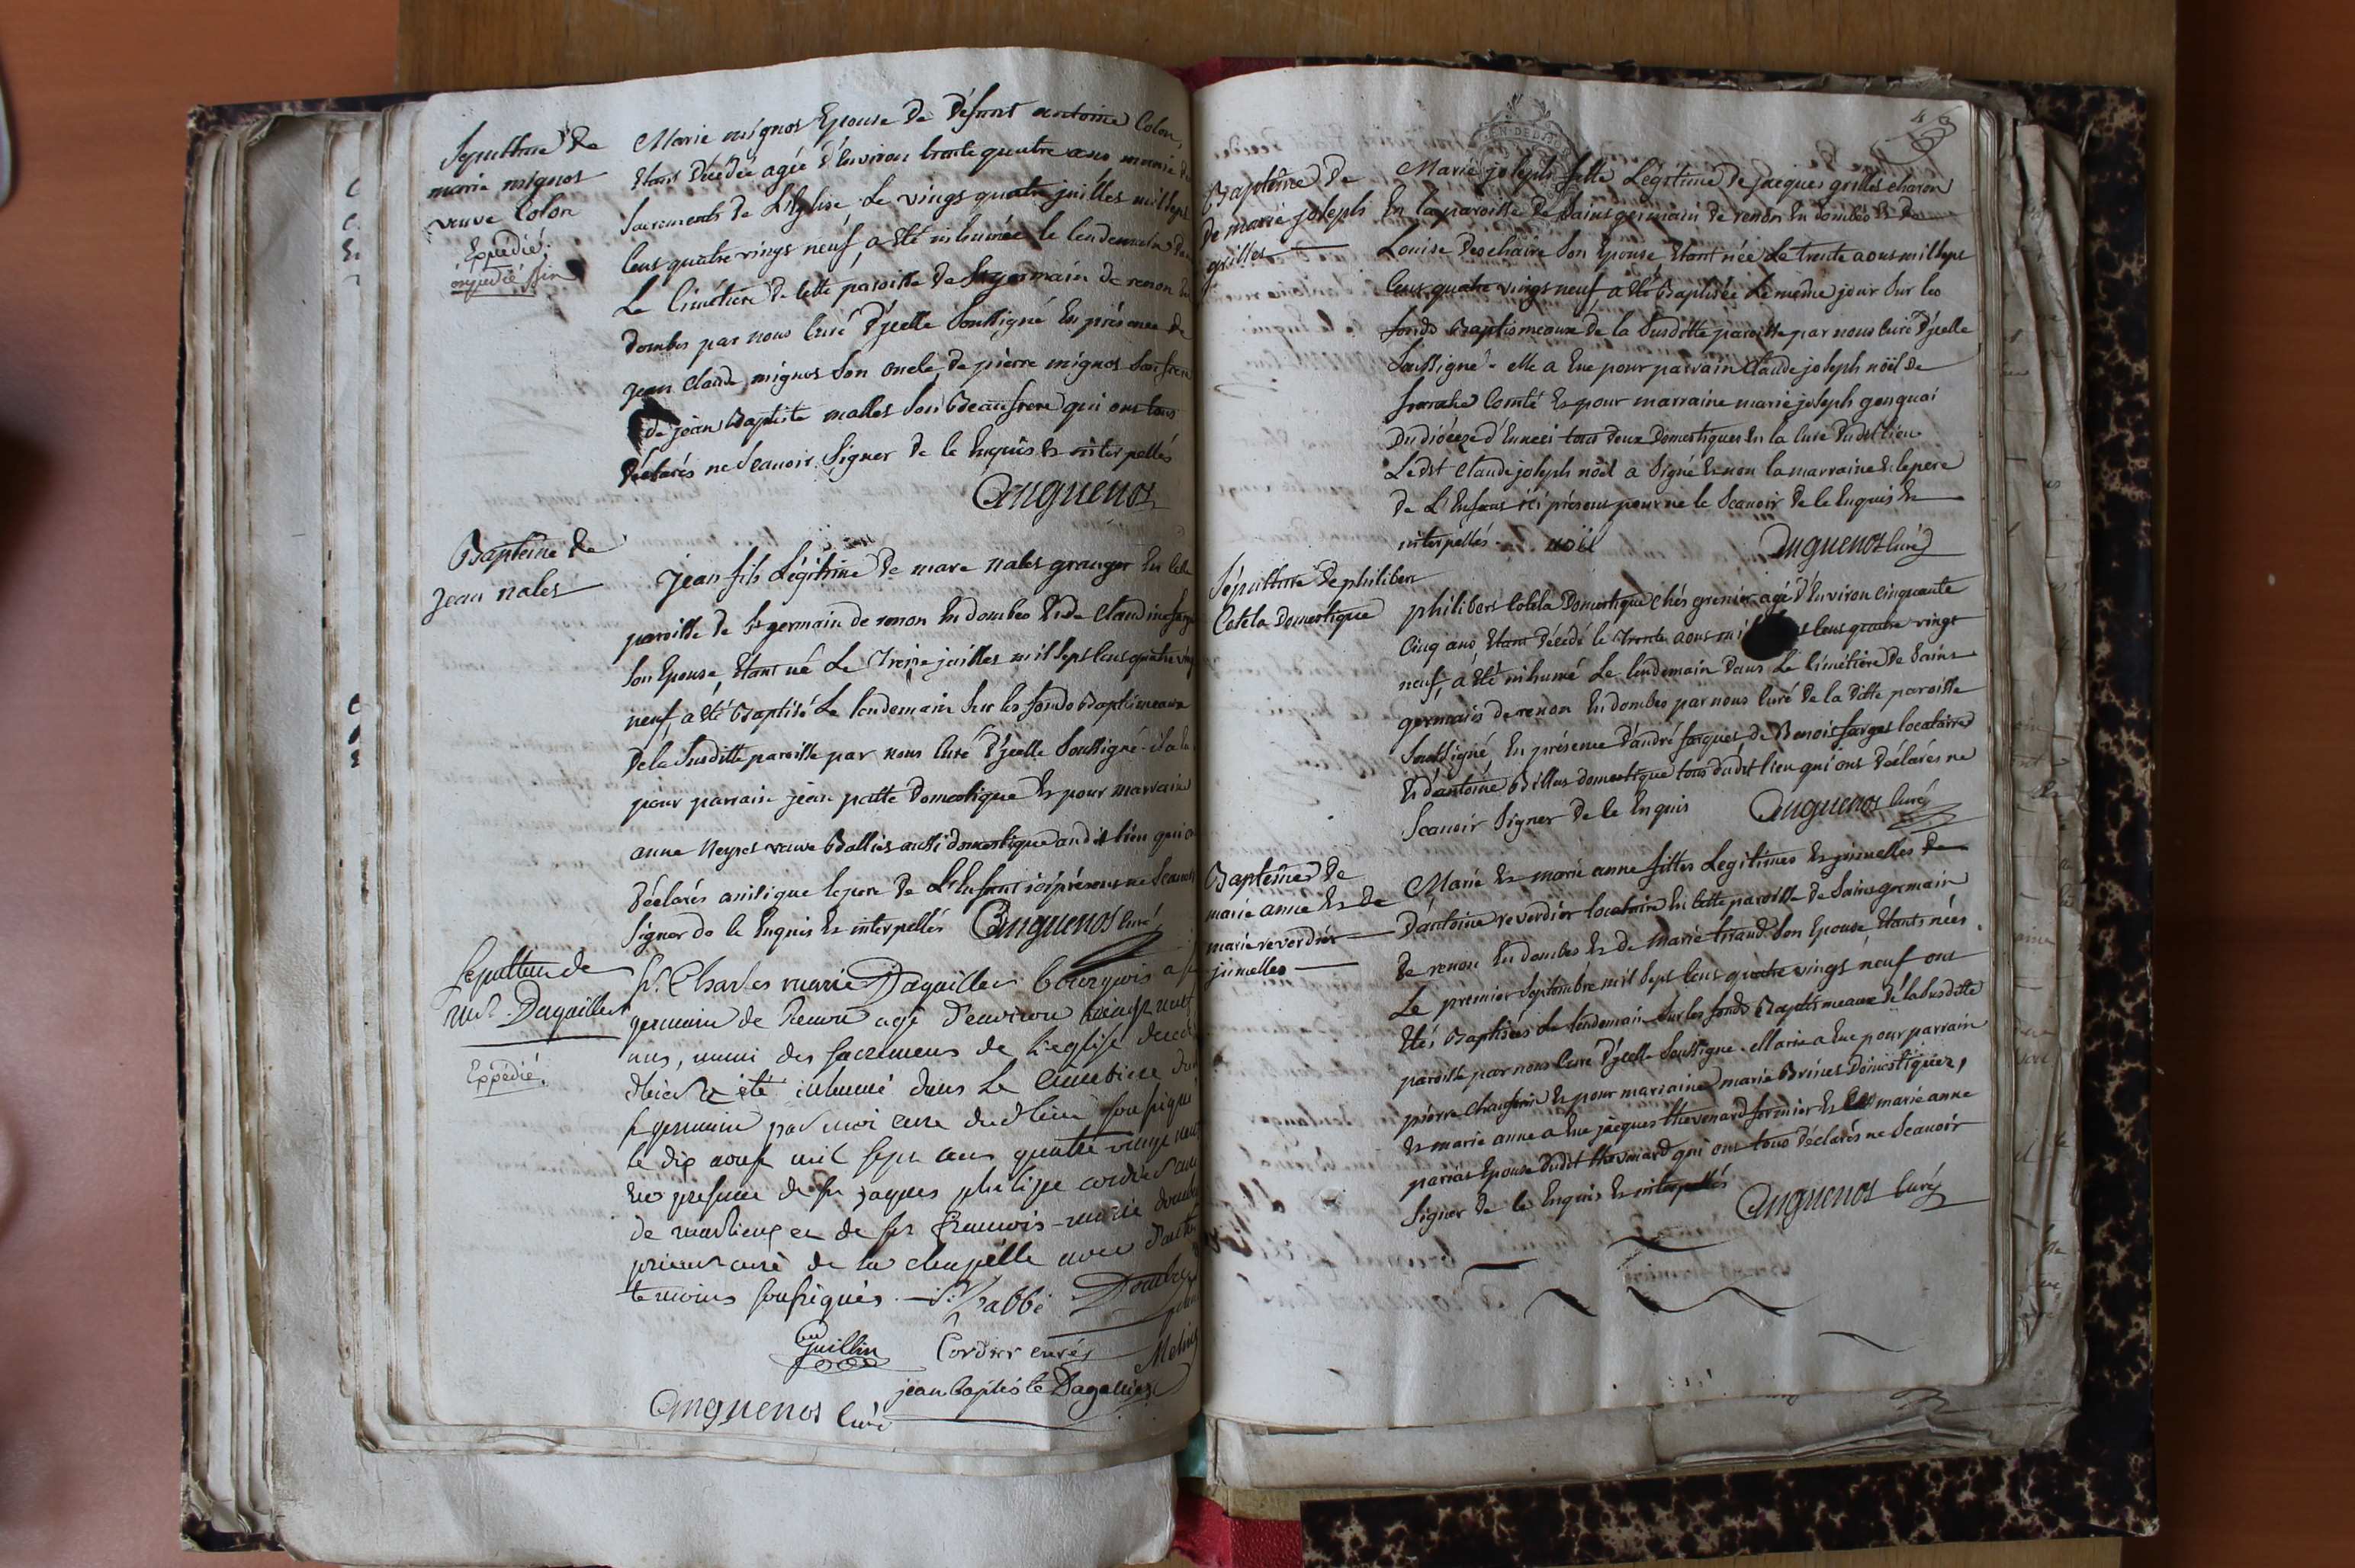 Sepulture de
marie mignot
veuve Colon
Expedié.
Marie mignot Epouse de défunt antoine Colon,
Etant décédée agée d'Environ trente quatre ans munie de
Sacrements de L'Eglise Le vingt quatre juillet mil sept
Cent quatre vingt neuf, a Eté inhumée le lendemain dans
Le Cimétiere de Cette paroisse de St germain de renon En
dombes par nous Curé d'ycelle Soussigné En présence de
jean Claude mignot Son oncle, de pierre mignot Son frere
de jean Baptiste mallet Son Beaufrere qui ont tous
déclarés ne Scauoir Signer de le Enquis Et interpellés
Anguenot
Baptême de
jean nalet
jean fils Légitime de marc nalet granger En Cette
paroisse de St germain de renon En dombes Et de Claudine
Son Epouse, Etant né Le Treize juillet mil Sept Cent quatre vingt
neuf, a Eté Baptisé Le lendemain Sur les fonds Baptismeaux
de la Susditte paroisse par nous Curé d'ycelle Soussigné. il a
pour parrain jean patte Domestique Et pour marraine
anne Neyret veuve Ballies aussi domestique audit lieu qui
déclarés ainsi que le pere de L'Enfant ici présent ne Scauoir
Signer de le Enquis Et interpellés Anguenot Curé
Sepulture de
mr. Dagaillier
Expédié.
Sr. Charles marie Dagaillier bourgeois a st
germain de Renon agé d'environ
ans, muni des sacremens de l'eglise
a été inhumé dans le Cimetiere du
st germain par moi curé dudt lieu soussigné
le dix aoust mil sept cens quatre vingt neuf
En presence de sr jaques philipe cordier curé
de marlieux et de sr françois-marie
prieur curé de la chapelle avec d'autres
temoins soussignés.
Guillin Cordier curé
jean baptiste Dagallier
Anguenot Curé
46
Baptême de
de marie joseph
grillet
Marie joseph fille Légitime de jacques grillet charon
En la paroisse de Saint germain de renon En dombes Et de
Louise Dechaire Son Epouse Etant née Le trente aout mil sept
Cent quatre vingt neuf, a Eté Baptisée Le même jour Sur les
fonds Baptismeaux de la Susditte paroisse par nous Curé d'ycelle
Soussigné. elle a Eue pour parrain Claude joseph nöel de
franche Comté Et pour marraine marie joseph genquai
du diócèze d'Enneci tous deux Domestiques En la Cure dudit lieu
Ledit Claude joseph nöel a Signé Et non la marraine Et le pere
de L'Enfant ici présent pour ne le Scauoir de le Enquis Et
interpellés. noël Anguenot Curé
Sépulture de philibert
Cotela Domestique
philibert Cotela Domestique chés grenier agé d'Environ Cinquante
Cinq ans Etant décédé le Trente aout mil Cent quatre vingt
neuf, a Eté inhumé Le lendemain dans Le Cimétiere de Saint
germain de renon En dombes par nous Curé de la ditte paroisse
Soussigné, En présence d'andré farguet de Benoit farget locataires
Et d'antoine Billus domestique tous dudit lieu qui ont déclarés ne
Scauoir Signer de le Enquis Anguenot Curé
Baptême de
marie anne Et de
marie reverdier
jumelles
Marie Et marie anne filles Legitimes Et jumelles de
D'antoine reverdier locataire En Cette paroisse de Saint germain
de renon En dombes Et de marie tiraud Son Epouse Etants nées
Le premier Septembre mil Sept Cent quatre vingt neuf ont
Etés Baptisées Le lendemain Sur les fonds Baptismeaux de la Susditte
paroisse par nous Curé d'ycelle Soussigné. Marie a Eue pour parrain
pierre Chanferin Et pour marraine marie Brinet Domestiques,
Et marie anne a Eue jacques thevenard fermier Et marie anne
parras Epouse dudit thevenard qui ont tous déclarés ne Scauoir
Signer de le Enquis Et interpellés
Anguenot Curé